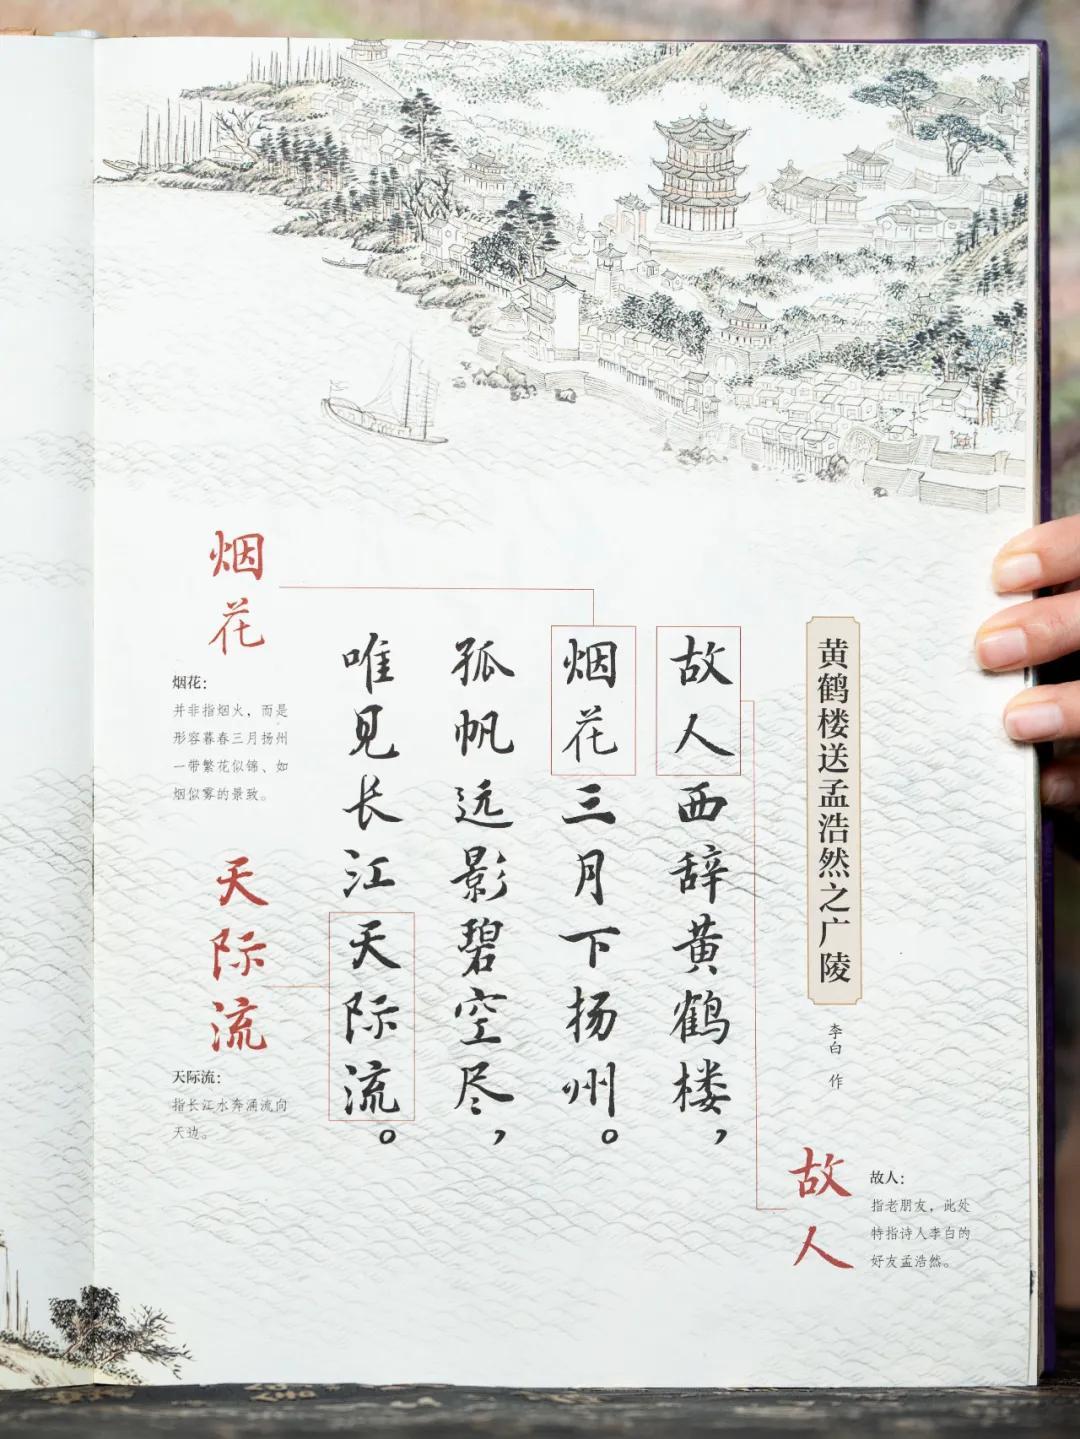 黄鹤楼送孟浩然之广陵
李白 作
故人西辞黄鹤楼，
烟花三月下扬州。
孤帆远影碧空尽，
唯见长江天际流。
故人
故人：
指老朋友，此处
特指诗人李白的
好友孟浩然。
烟花
烟花：
并非指烟火，而是
形容暮春三月扬州
一带繁花似锦、如
烟似雾的景致。
天际流
天际流：
指长江水奔涌流向
天边。